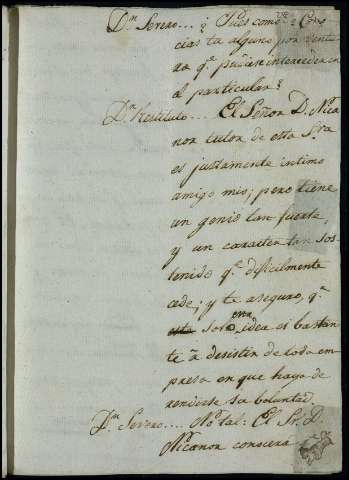 Dn. Severo... ¿Pues como? ¿Cono
cias tu alguno por ventu
ra qe. pudiera interceder en
el particular?
Dn. Restituto... El Señor D. Nica
nor tutor de esta Sra.
es justamente intimo
amigo mio; pero tiene
un genio tan fuerte,
y un caracter tan sos
tenido qe. dificilmente
cede; y te aseguro, qe.
sola idea si bastan
te á desistir de toda em
presa en que haya de
rendirse su boluntad
Dn. Severo.... No tal: El Sr. D.
Nicanor conocerá